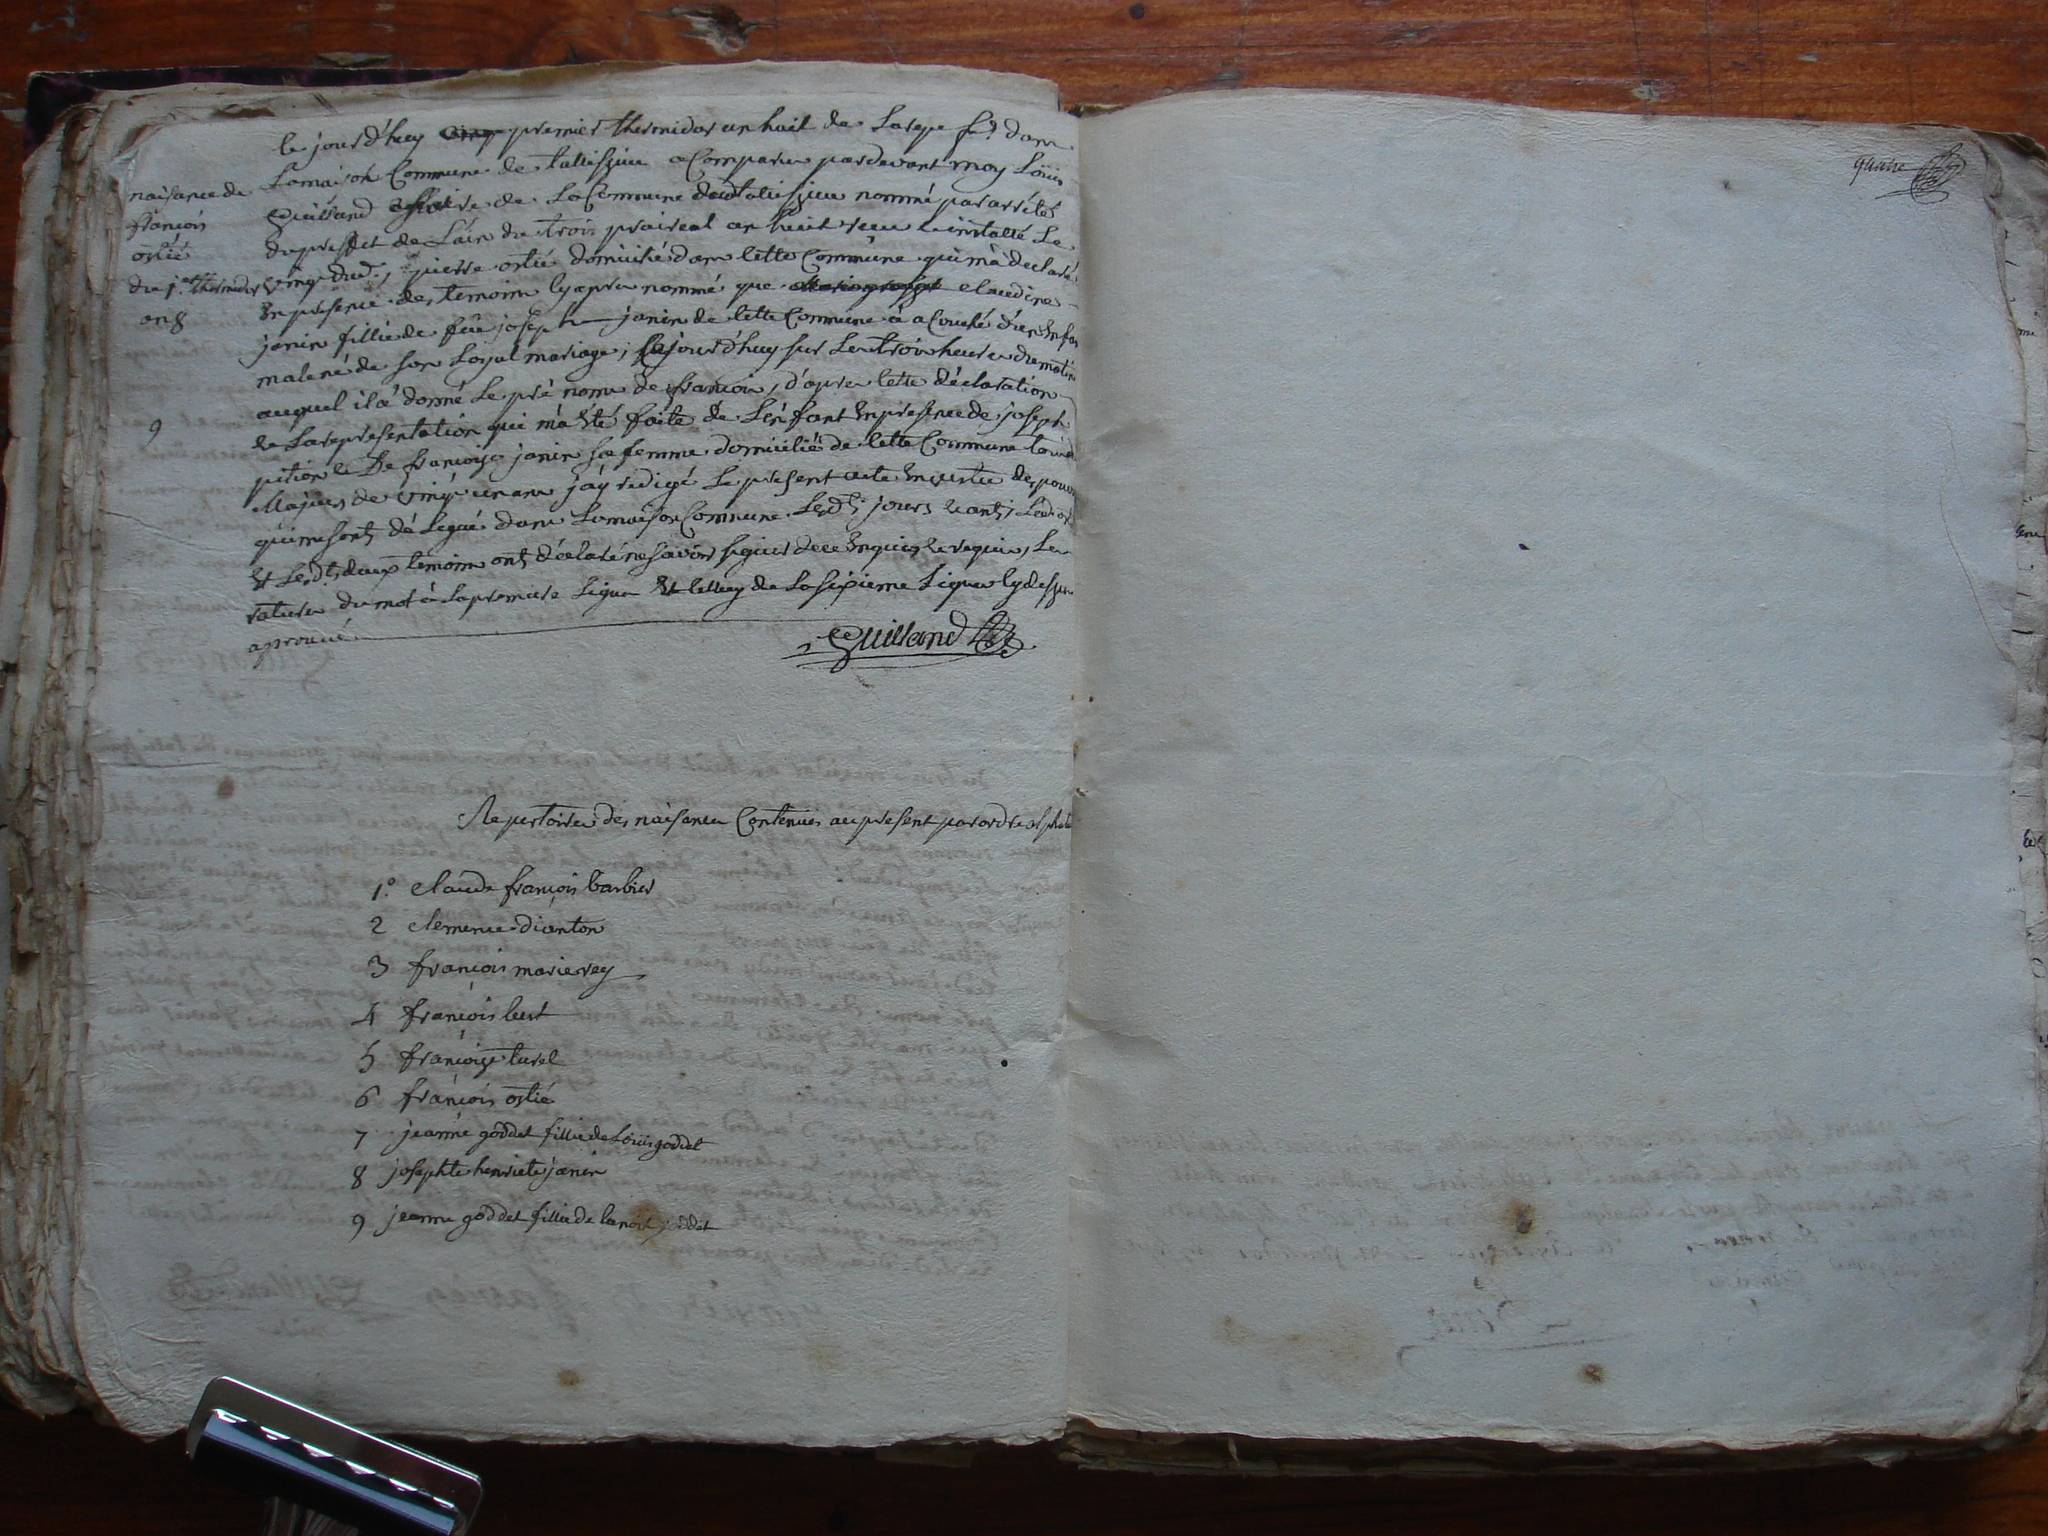 le jourd'huy premier thermidor an huit de La repe fse dans
naisance de
françois
ostié
du 1er thermidor
an 8
9
La maison Commune de talissieu a Comparu pardevant moy Loüis
Guilland Maire de La Commune de talissieu nommé par arrêtés
du prefet de L'ain du trois praireal an huit et installé Le
vingt dud., pierre ostié domicilié dans Cette Commune qui m'a declaré
En presence des temoins Cy apres nommé que Claudine
janin fillie de feu joseph janin de Cette Commune à acouché d'un Enfan
male né de son Loyal mariage, Le jourd'huy sur Les trois heures du matin
auquel il a donné Le pré nom de françois, d'apres Cette déclaration
et La representation qui m'a Eté faite de L'enfant En presence de joseph
pition et De françoise janin sa femme domicilié de Cette Commune
Majeurs de vingt un ans j'ay redigé Le présent acte En vertu des pouvo
qui me sont délegué dans La maison Commune Lesdts jours et an, Led. ost
Et Lesdts deux temoins onts déclaré ne savoir signer de ce Enquis et requis, Les
ratures du mot à La premiere Ligne Et celluy de La sixieme Ligne Cy dessus
aprouvé
Guilland
Repertoire des naisance Contenues au present par ordre alphab
1° Claude françois barbier
2 Clemence d'ianton
3 françois marie rey
4 françois
5 françoise turel
6 françois ostié
7 jeanne goddet fillie de Loüis goddet
8 josephte henriete janin
9 jeanne goddet fillie de benoit goddet